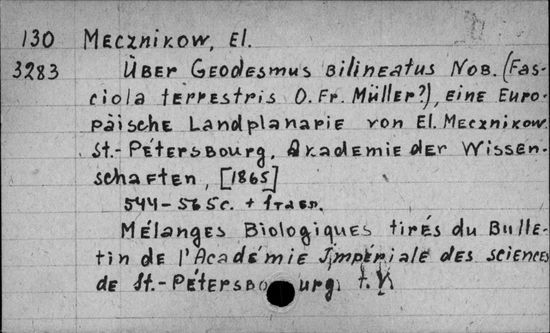 130 Mecznikow, El.
3283 Über Geodesmus bilineatus Nob. (Fas-
ciola terrestris O. Fr. Müller?), eine Euro-
päische Landplanarie von El. Mecznikow.
St.-Pétersbourg, Akademie der Wissen-
schaften, [1865]
544-565 с. + 1 табл.
Mélanges Biologiques tirés du Bulle-
tin de l'Académie Impériale des sciences
de St.-Pétersbourg, t. V